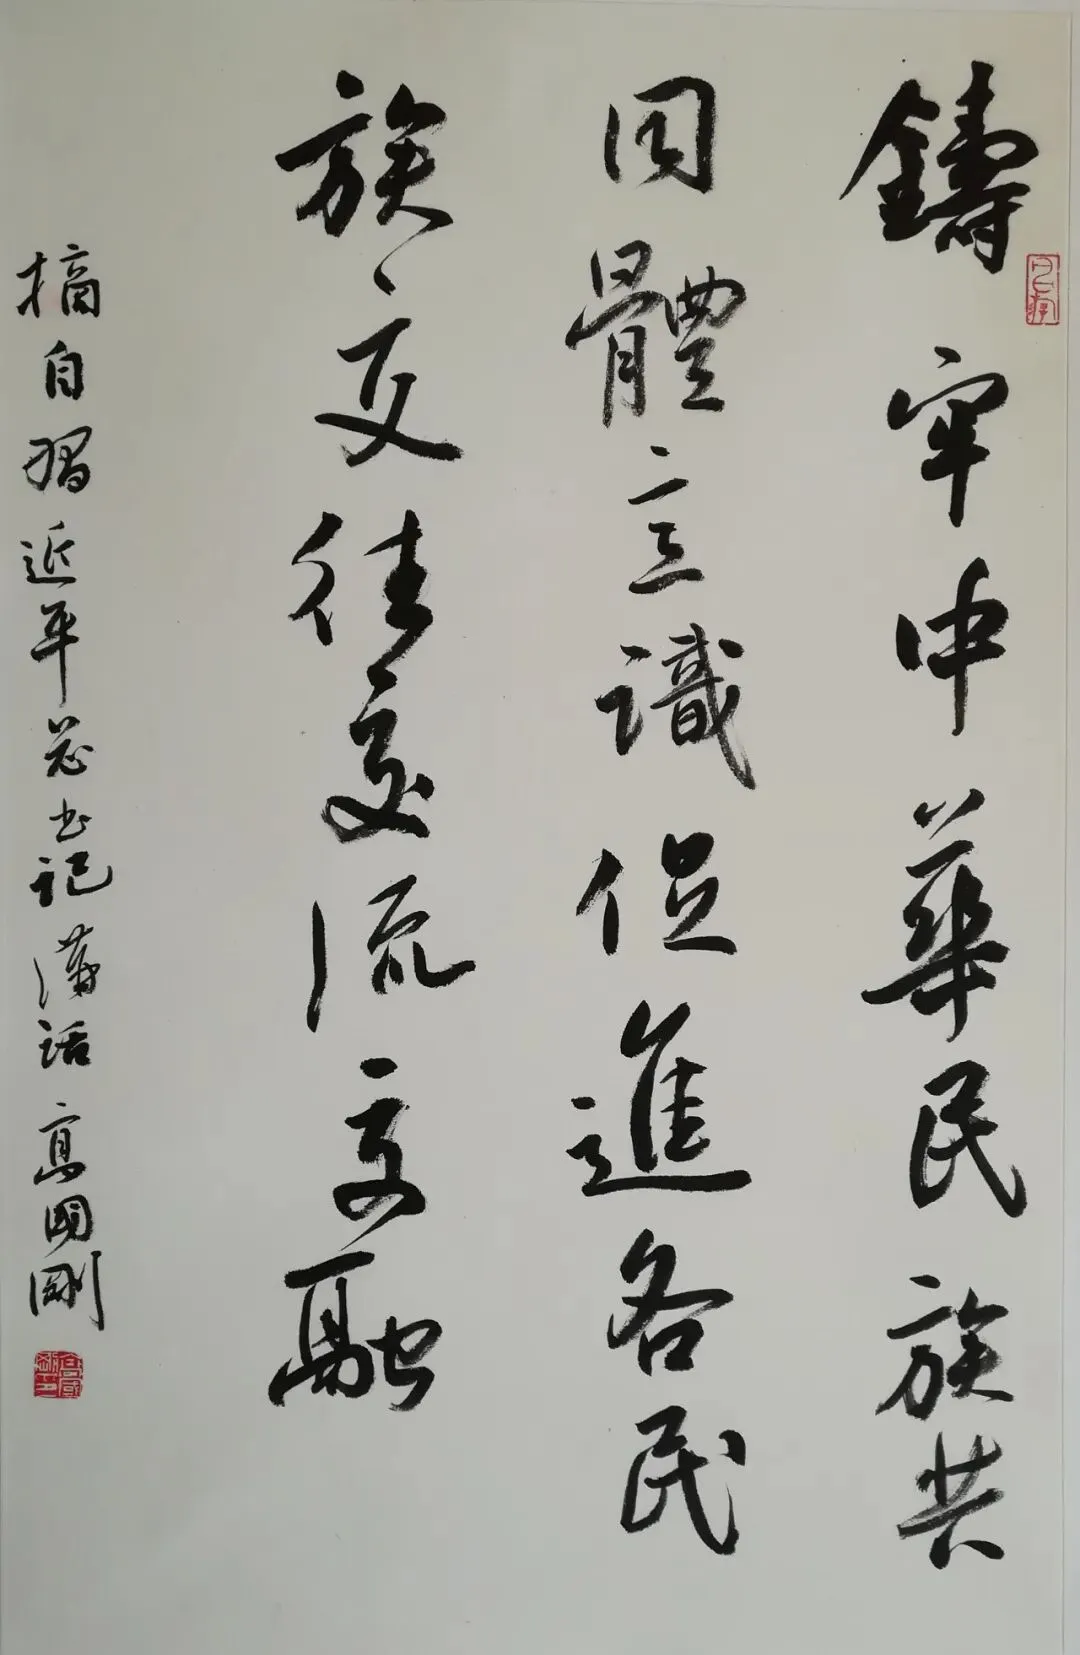 鑄牢中華民族共
同體意識促進各民
族交往交流交融
摘自習近平总书记講話 高國剛